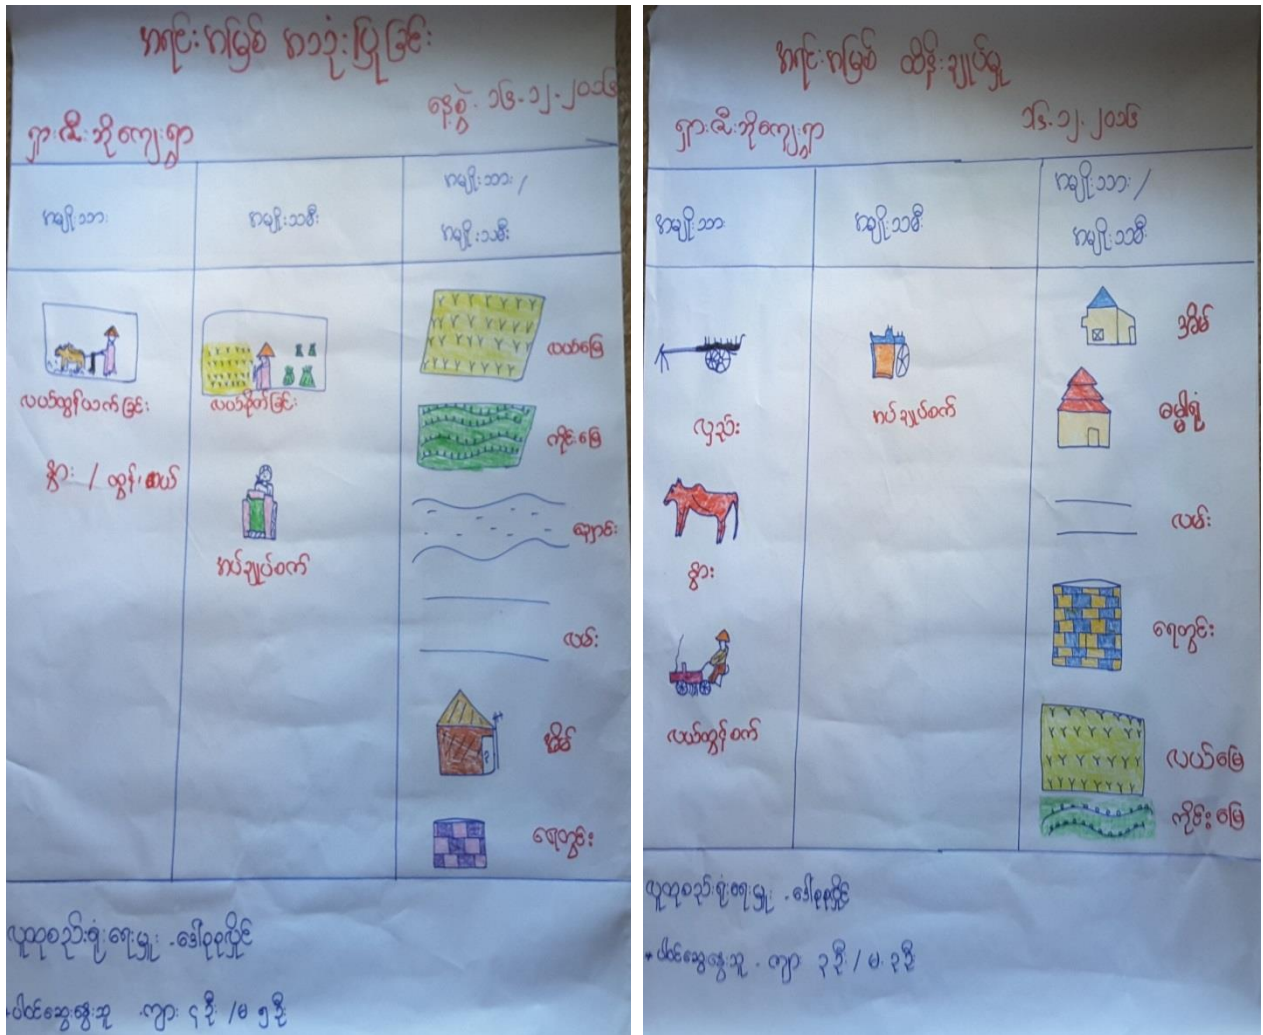 အရင်းအမြစ် အသုံးပြုခြင်း
နေ့စွဲ. ၁၆.၁၂.၂၀၁၆
ရှားဇီးဘိုကျေးရွာ
အမျိုးသား
အမျိုးသမီး
အမျိုးသား /
အမျိုးသမီး
လယ်ထွန်ယက်ခြင်း
နွား / ထွန်၊ လယ်
လယ်စိုက်ခြင်း
အပ်ချုပ်စက်
လယ်မြေ
ကိုင်းမြေ
ချောင်း
လမ်း
အိမ်
ရေတွင်း
လူထုစည်းရုံးရေးမှူး - ဒေါ်စုစုလှိုင်
ပါဝင်ဆွေးနွေးသူ ကျား ၄ ဦး / မ ၅ ဦး
အရင်းအမြစ် ထိန်းချုပ်မှု
၁၆.၁၂.၂၀၁၆
ရှားဇီးဘိုကျေးရွာ
အမျိုးသား
အမျိုးသမီး
အမျိုးသား /
အမျိုးသမီး
လှည်း
နွား
လယ်ထွန်စက်
အပ်ချုပ်စက်
အိမ်
ဓမ္မာရုံ
လမ်း
ရေတွင်း
လယ်မြေ
ကိုင်းမြေ
လူထုစည်းရုံးရေးမှူး - ဒေါ်စုစုလှိုင်
* ပါဝင်ဆွေးနွေးသူ - ကျား ၃ ဦး / မ ၃ ဦး